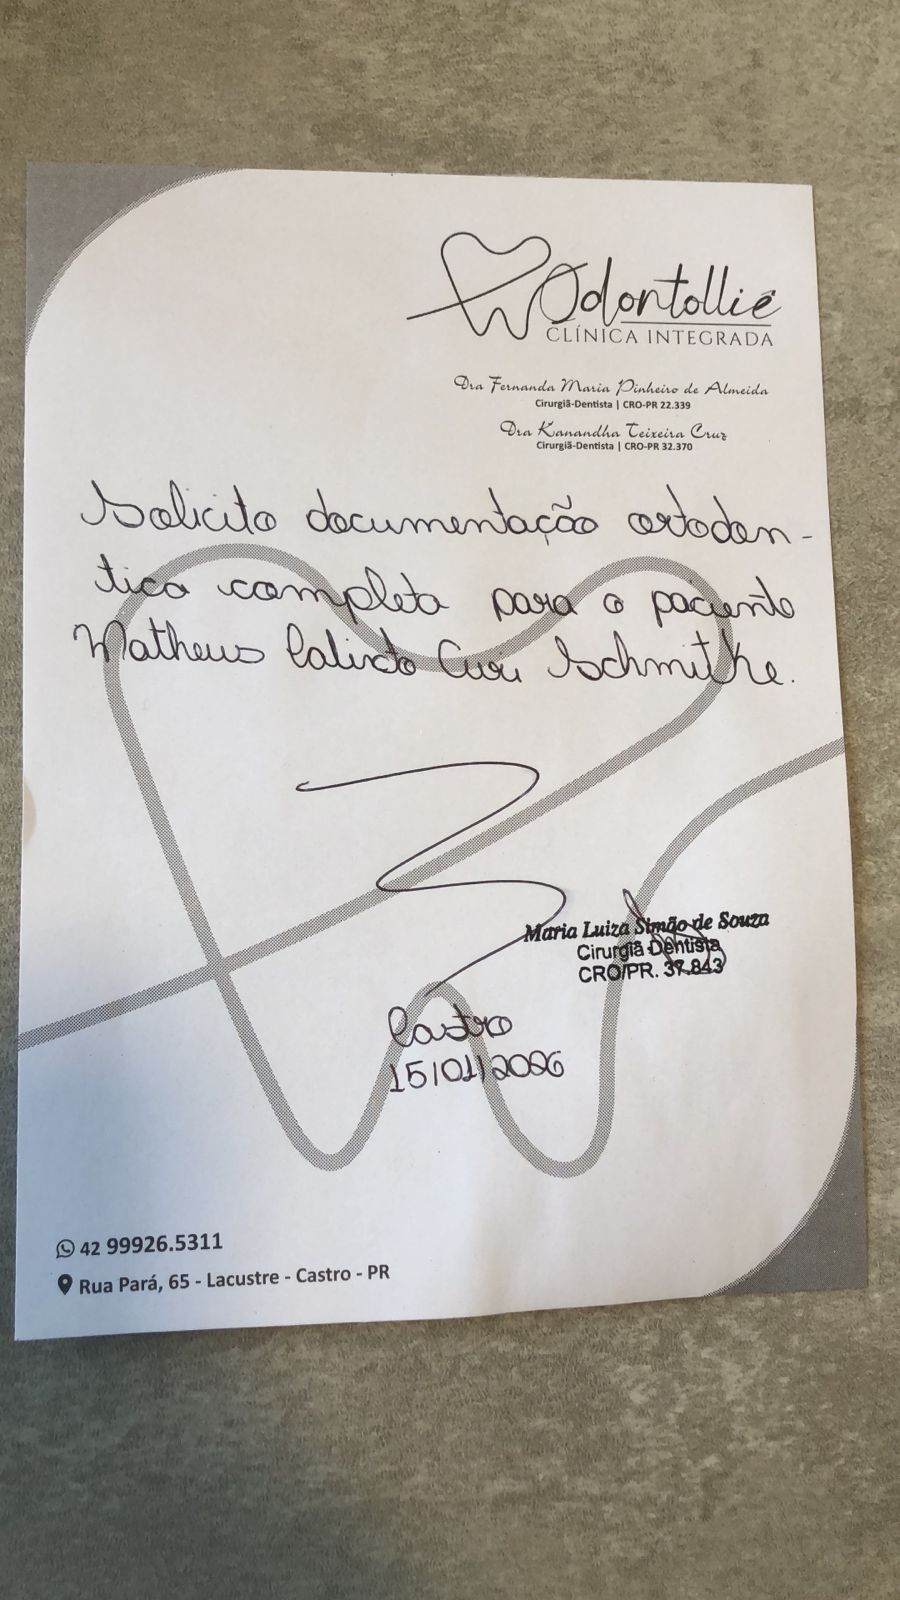 Odontollié
CLÍNICA INTEGRADA
Dra Fernanda Maria Pinheiro de Almeida
Cirurgiã-Dentista | CRO-PR 22.339
Dra Kanandha Teixeira Cruz
Cirurgiã-Dentista | CRO-PR 32.370
Solicito documentação ortodon-
tica completa para o paciente
Matheus Calixto Curi Schmitke.
Maria Luiza Simão de Souza
Cirurgiã Dentista
CRO/PR. 37.843
Castro
15/01/2026
42 99926.5311
Rua Pará, 65 - Lacustre - Castro - PR